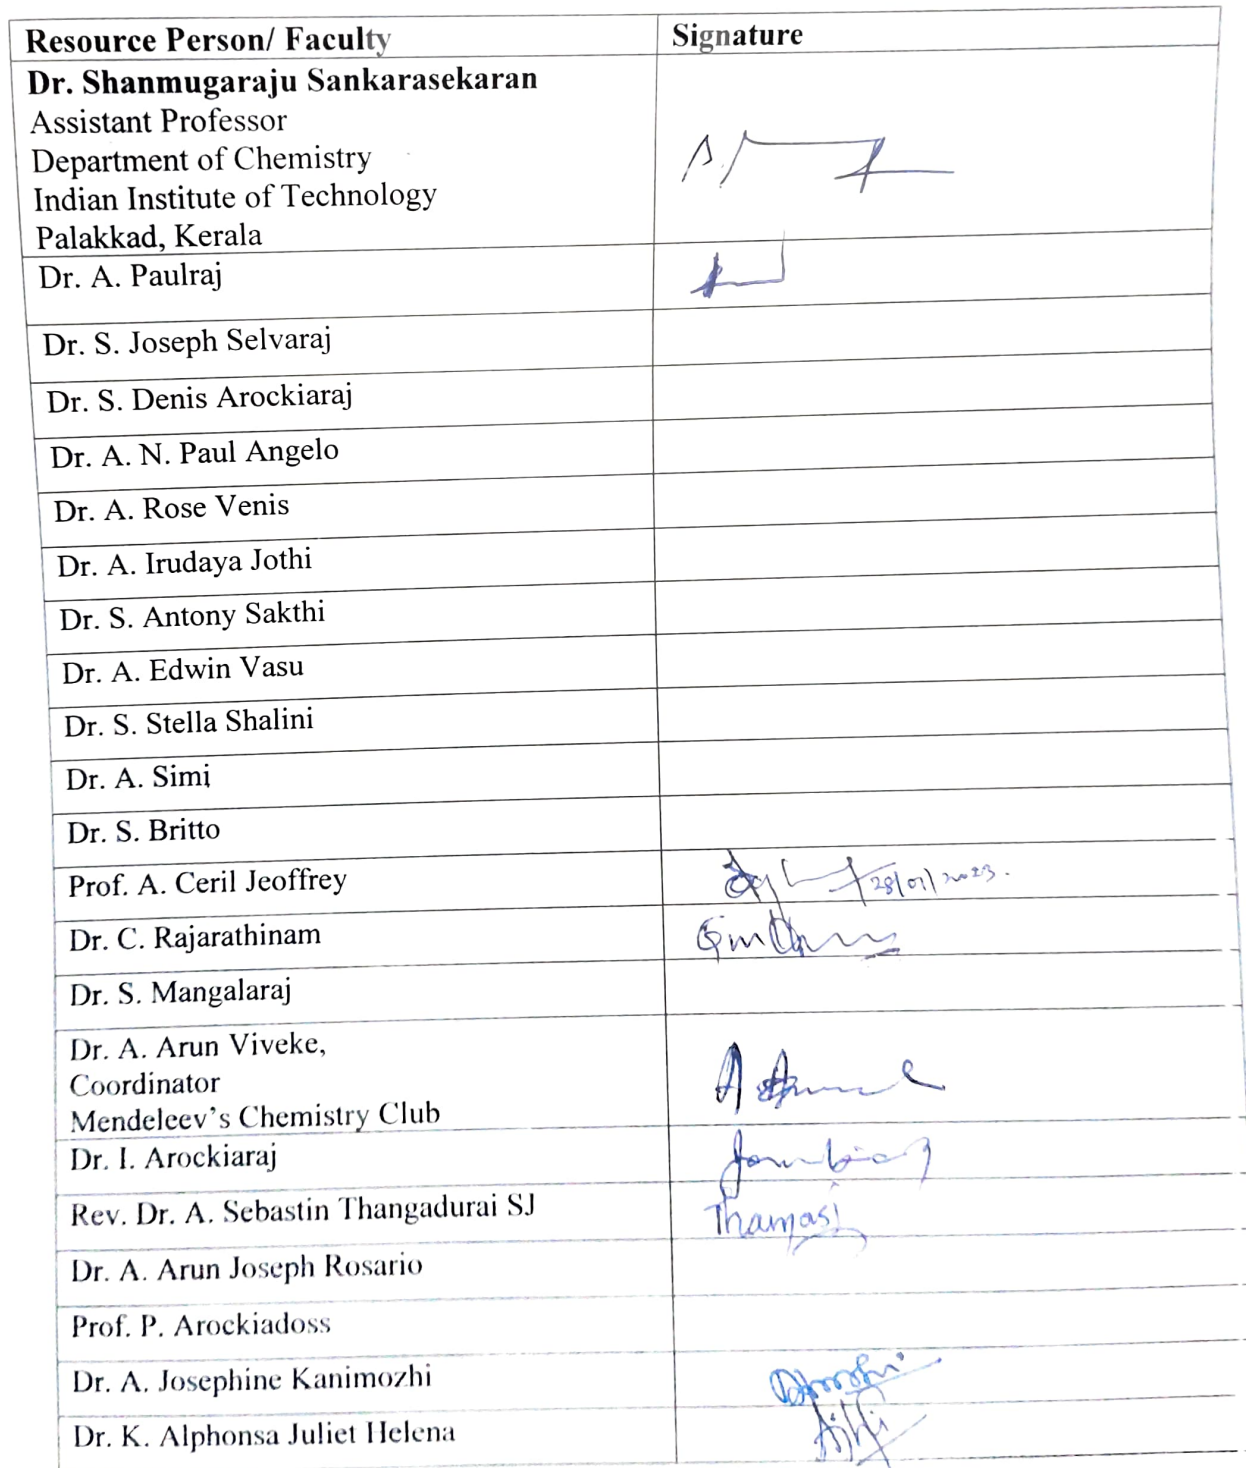 Resource Person/ Faculty
Signature
Dr. Shanmugaraju Sankarasekaran
Assistant Professor
Department of Chemistry
Indian Institute of Technology
Palakkad, Kerala
Dr. A. Paulraj
Dr. S. Joseph Selvaraj
Dr. S. Denis Arockiaraj
Dr. A. N. Paul Angelo
Dr. A. Rose Venis
Dr. A. Irudaya Jothi
Dr. S. Antony Sakthi
Dr. A. Edwin Vasu
Dr. S. Stella Shalini
Dr. A. Simi
Dr. S. Britto
Prof. A. Ceril Jeoffrey
28/01/2023.
Dr. C. Rajarathinam
Dr. S. Mangalaraj
Dr. A. Arun Viveke,
Coordinator
Mendeleev's Chemistry Club
Dr. I. Arockiaraj
Rev. Dr. A. Sebastin Thangadurai SJ
Dr. A. Arun Joseph Rosario
Prof. P. Arockiadoss
Dr. A. Josephine Kanimozhi
Dr. K. Alphonsa Juliet Helena